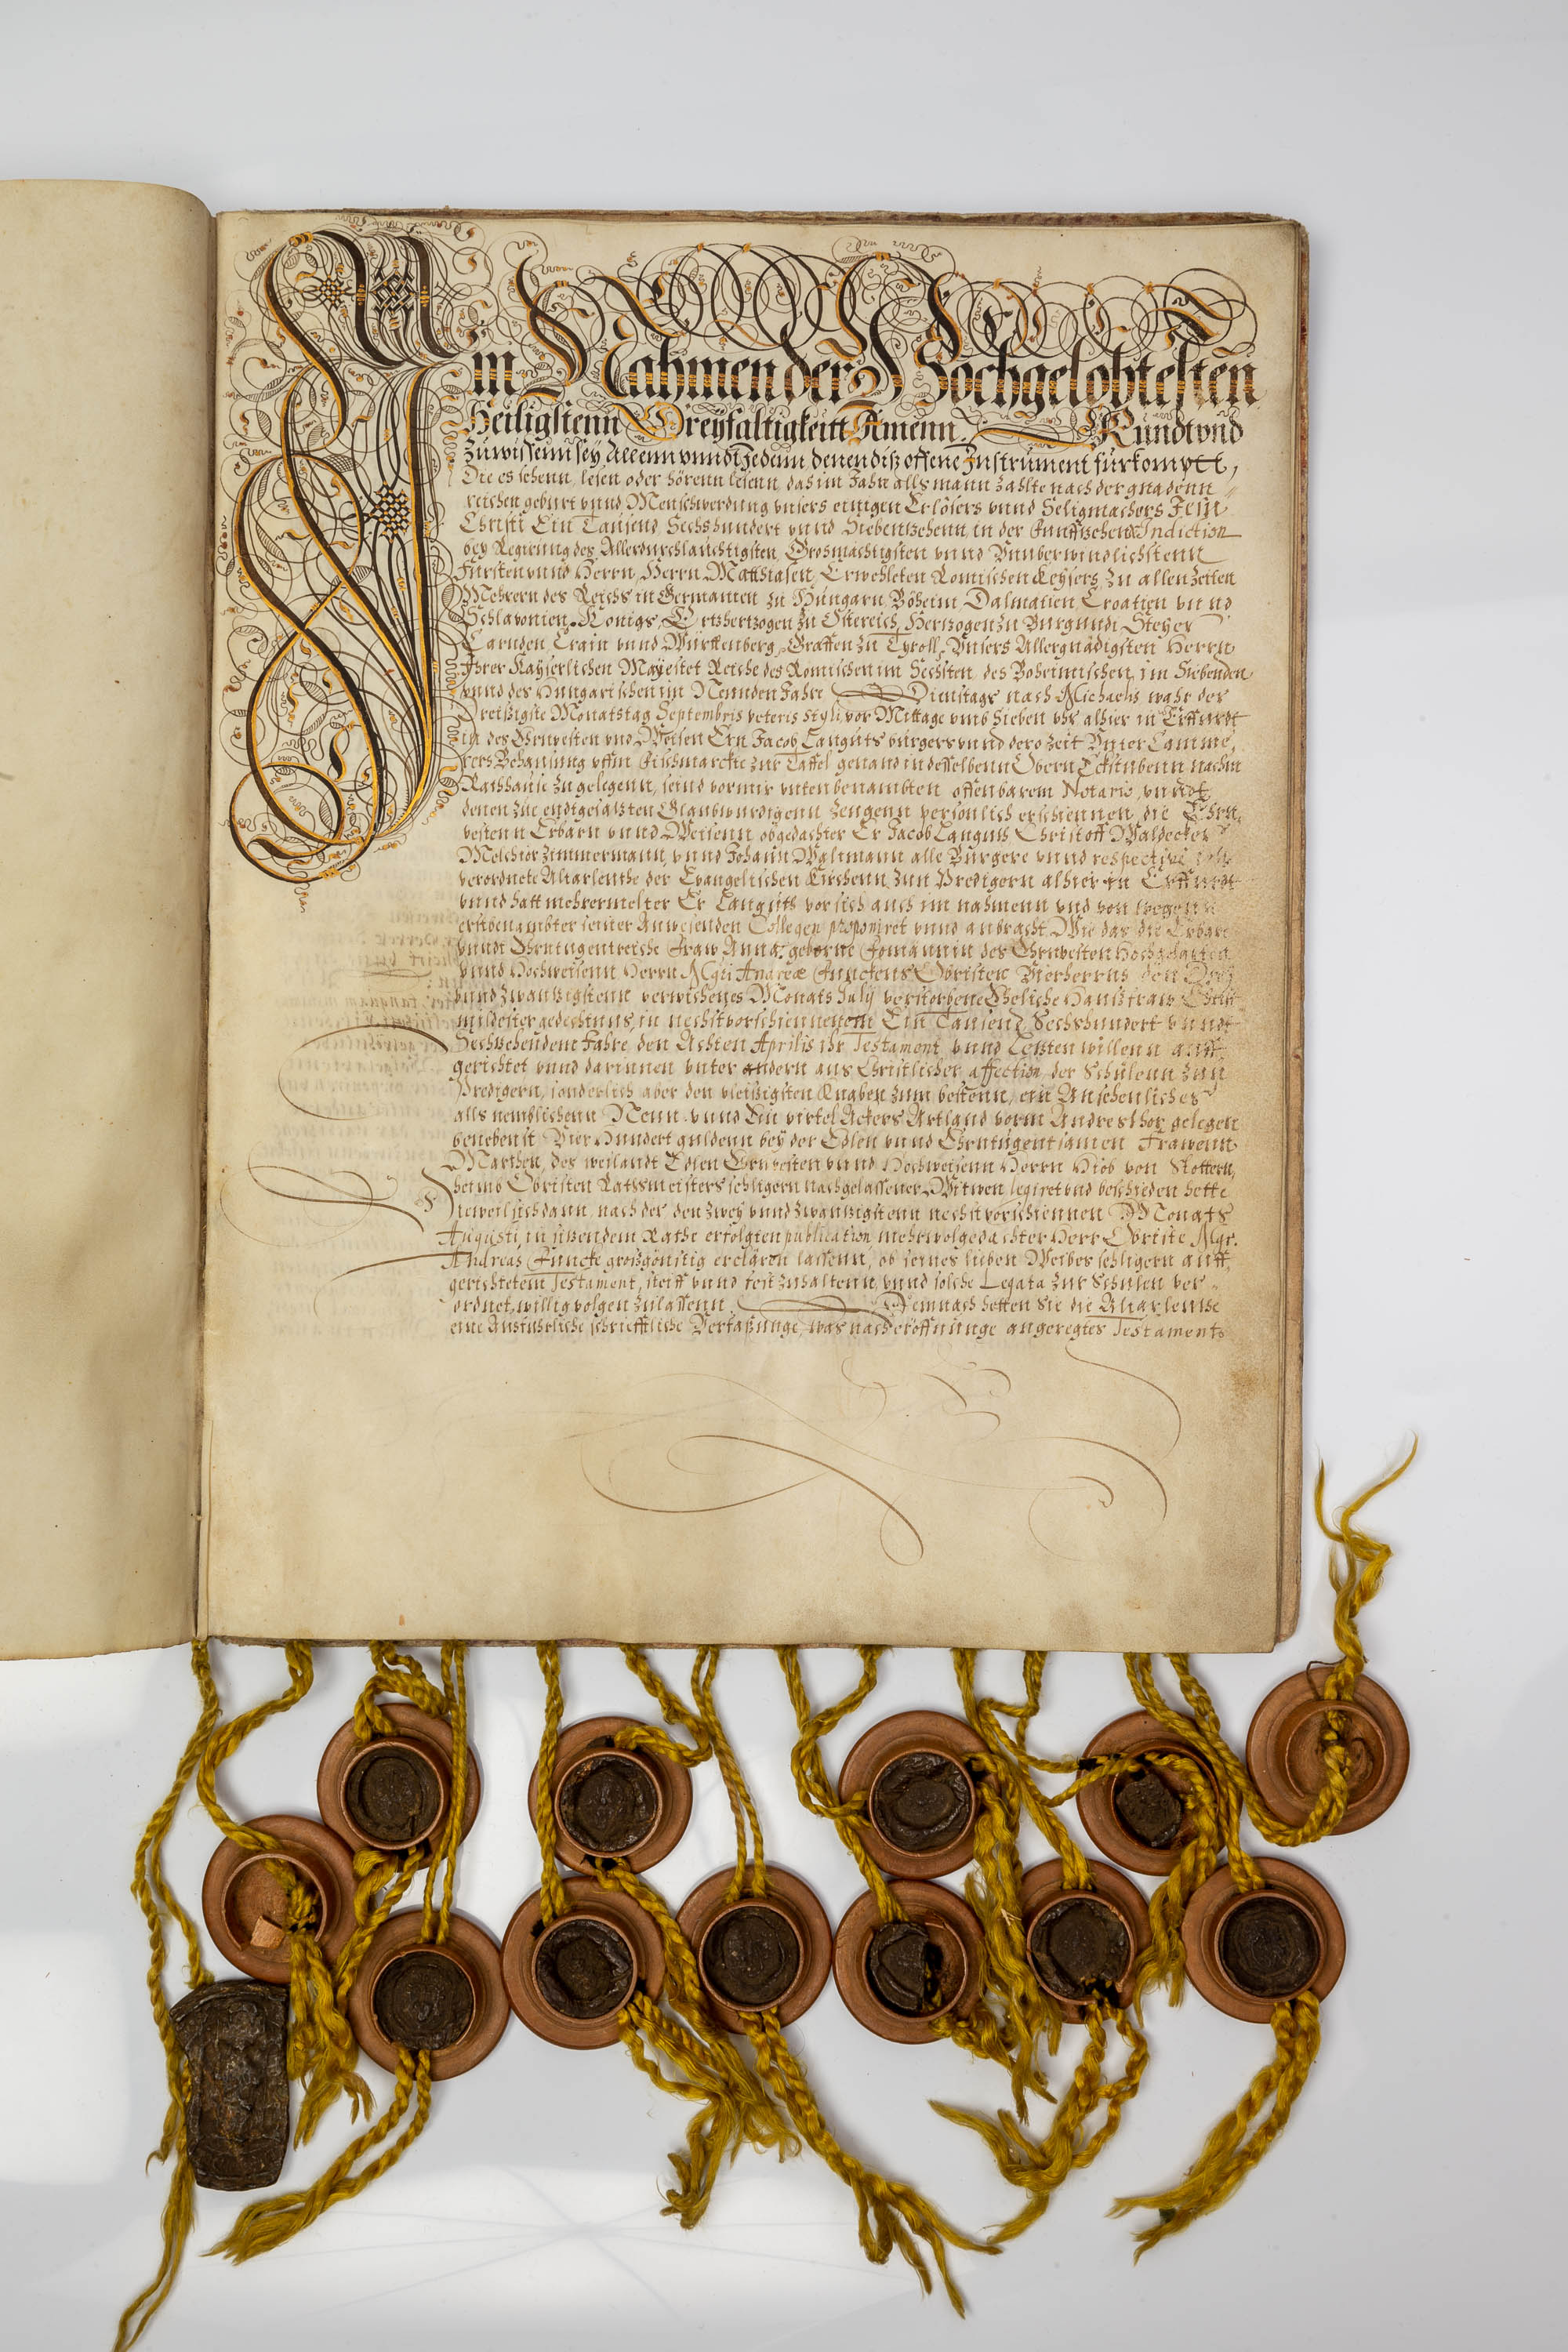 Im Nahmen der Hochgelobtesten
Heiligstenn Dreyfaltigkeitt Amenn. Kundt vnd
Zuwissenn sey Allenn vnnd Jedenn denen diß offene Instrument fürkompt,
Die es sehenn, lesen oder hörenn lesenn, das im Jahre alls mann zahlte nach der gnadenn
reichen geburt vnnd Menschwerdung vnsers einigen Erlösers vnnd Seligmachers Jesu
Christi Ein Tausend Sechshundert vnnd Siebentzehenn, in der Funfftzehend Indiction
bey Regierung des Allerdurchlauchtigsten Grosmächtigsten vnnd Vnuberwindlichstenn
Fürsten vnnd Herrn, Herrn Matthiasen, Erwehleten Romischen Keysers, zu allen Zeiten
Mehrern des Reichs in Germanien zu Hungarn Böheim Dalmatien Croatien vnnd
Schlavonien Konigs, Ertzhertzogen zu Osterreich, Hertzogen zu Burgundi Steyer
Carnden, Crain vnnd Würtenberg, Graffen zu Tyroll, Vnsers Allergnädigsten Herrn
Ihrer Kayserlichen Mayestet Reiche des Romischen im Sechsten, des Boheimischen im Siebenden
vnnd des Hungarischen im Neunden Jahre Dinstags nach Michaelis wahr der
Dreißigste Monatstag Septembris veteris styli, vor Mittage vmb Sieben vhr alhier in Erffurdt
in des Ehrnvesten vnd Weisen Ern Jacob Languts burgers vnnd dero Zeit Vnter Camme,
rers Behausung vffm Fischmarckte zur Taffel genand in desselbenn Obern Eckstubenn nachm
Rathhause zu gelegenn, seind vor mir vnten benambten offenbarem Notario, vnndt
denen zue endt gesatzten Glaubwurdigenn Zeugenn persönlich erschiennen, die Ehrn,
vestenn Erbarn vnnd Weisenn obgedachter Er Jacob Langutt Christoff Waldecker
Melchior Zimmermann, vnnd Johann Waltmann alle Bürgere vnnd respective
verordnete Altarleuthe der Evangelischen Kirchenn zun Predigern alhier in Erffurdt
vnnd hatt mehrermelter Er Langutt vor sich auch im nahmenn vnd von wegenn
erstbenambter seiner Anwesenden Collegen proponiret vnnd anbracht, Wie das die Erbare
vnndt Ehrntugentreiche Fraw Anna geborne Fomannin des Ehrnvesten Hochgelarten
vnnd Hochweisenn Herrn Mgri Andreæ Funckens Obristen Vierherrns den Drey
vnnd Zwantzigstenn verwichenes Monats July verstorbene Eheliche Hausfraw Christ
mildester gedechtnus, in nechstvorschiennenem Ein Tausend Sechshundert vnndt
Sechtzehendem Jahre, den Achten Aprilis ihr Testament vnnd Letzten willenn auff,
gerichtet vnnd darinnen vnter andern aus Christlicher affection, der Schulenn zun
Predigern, sonderlich aber den vleißigsten Knaben zum bestenn, ein Ansehenliches
alls nemblichenn Neun vnnd Ein virtel Ackers Artland vorm Andresthor gelegen
benebenst Vier Hundert guldenn bey der Edlen vnnd Ehrntugentsamen Frawenn
Marthen, des weilandt Edlen Ehrnvesten vnnd Hochweisenn Herrn Hiob von Stottern,
heimb Obristen Rattsmeisters sehligern nachgelassener Witwen legiret vnd beschieden hette
Dieweil sich dann, nach der den Zwey vnnd Zwantzigstenn nechstvorschiennen Monats
Augusti, in sitzendem Rathe erfolgten publication mehrwolgedachter Herr Obriste Mgr.
Andreas Funcke großgönstig erclären lassenn, ob seines lieben Weibes sehligern auff,
gerichtetem Testament, steiff vnnd fest zuhaltenn, vnnd solche Legata zur Schulen ver,
ordnet, willig volgen zulassenn. Demnach hetten Sie die Altarleuthe
eine Ausfuhrliche schriefftliche Verfaßunge, was nach eröffnunge angeregtes Testaments